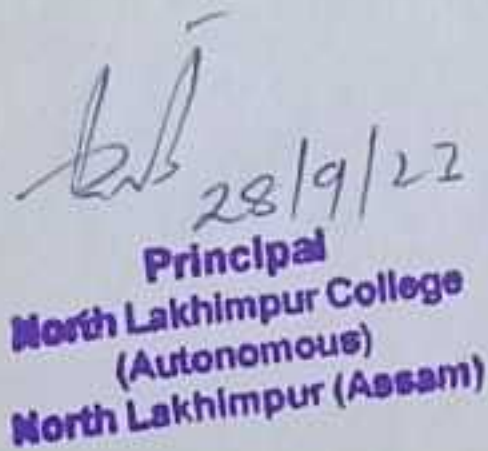 28/9/22
Principal
North Lakhimpur College
(Autonomous)
North Lakhimpur (Assam)